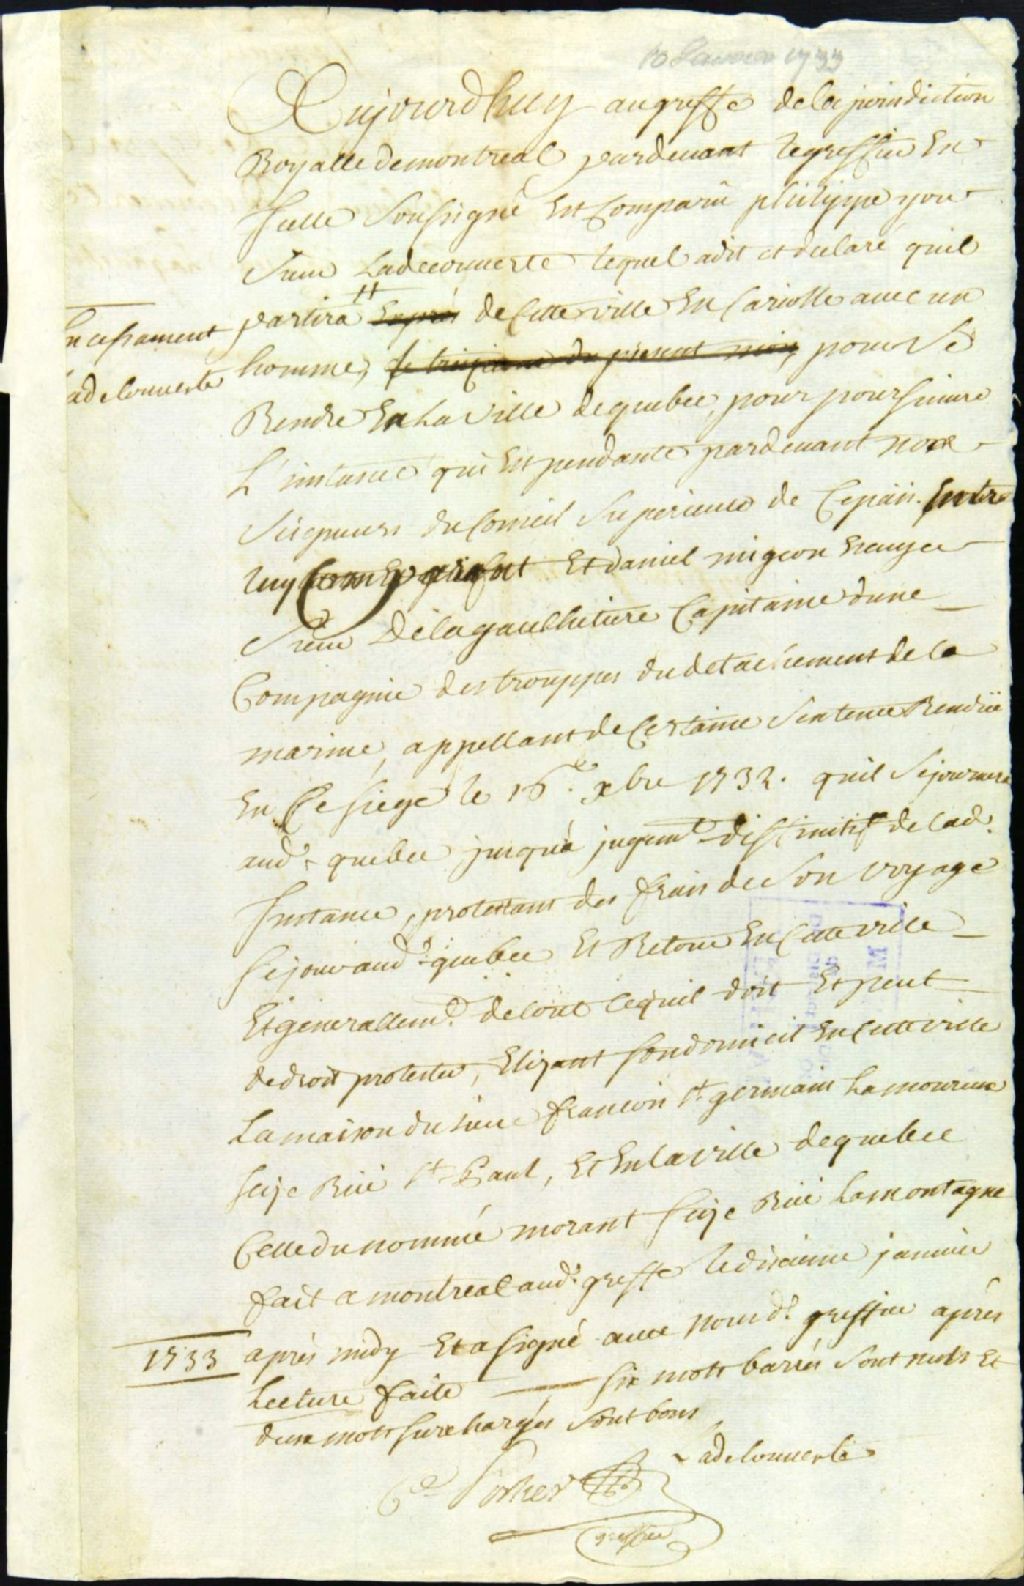 10 Janvier 1733
Aujourdhuy augreffe delajurisdiction
Royalle demontreal pardevant legreffier En
Icelle Soussigné Est Comparû philippe you
Sieur Ladecouverte lequel adit et declaré quil
partira de Cette ville En Cariolle avec un
Incessament
Ladecouverte
homme, le troizieme du present mois pour Se
Rendre En La Ville dequebec, pour poursuivre
L'instance qui Est pendante pardevant nos
Seigneurs du Conseil Superieur de Cepaïs. Entre
luy Et daniel migeon Ecuyer
Sieur Delagauchetiere Capitaine dune
Compagnie des trouppes du detachement de la
marine, appellant de Certaine Sentence Rendüe
En Ce siege le 16e. xbre 1732. quil Sejournera
aud. quebec jusqu'à jugemt. diffinitif de lad.
Instance, protestant des frais de Son voyage
Sejour aud. quebec Et Retour En Cette ville
Et generallemt. detout cequil doit Et peut
dedroit protester, Elizant Son domicil En Cette ville
La maison du sieur francois St germain Lamoureux
size Rüe St Paul, Et En la ville dequebec
Celle du nommé morant size Rüe Lamontagne
fait a montreal aud. greffe ledixieme janvier
1733
après midy Et a signé avec nous d. greffier après
Lecture faite six mots barrés sont nuls Et
deux mots surchargés Sont bons
Ladecouverte
C. Porlier
greffier